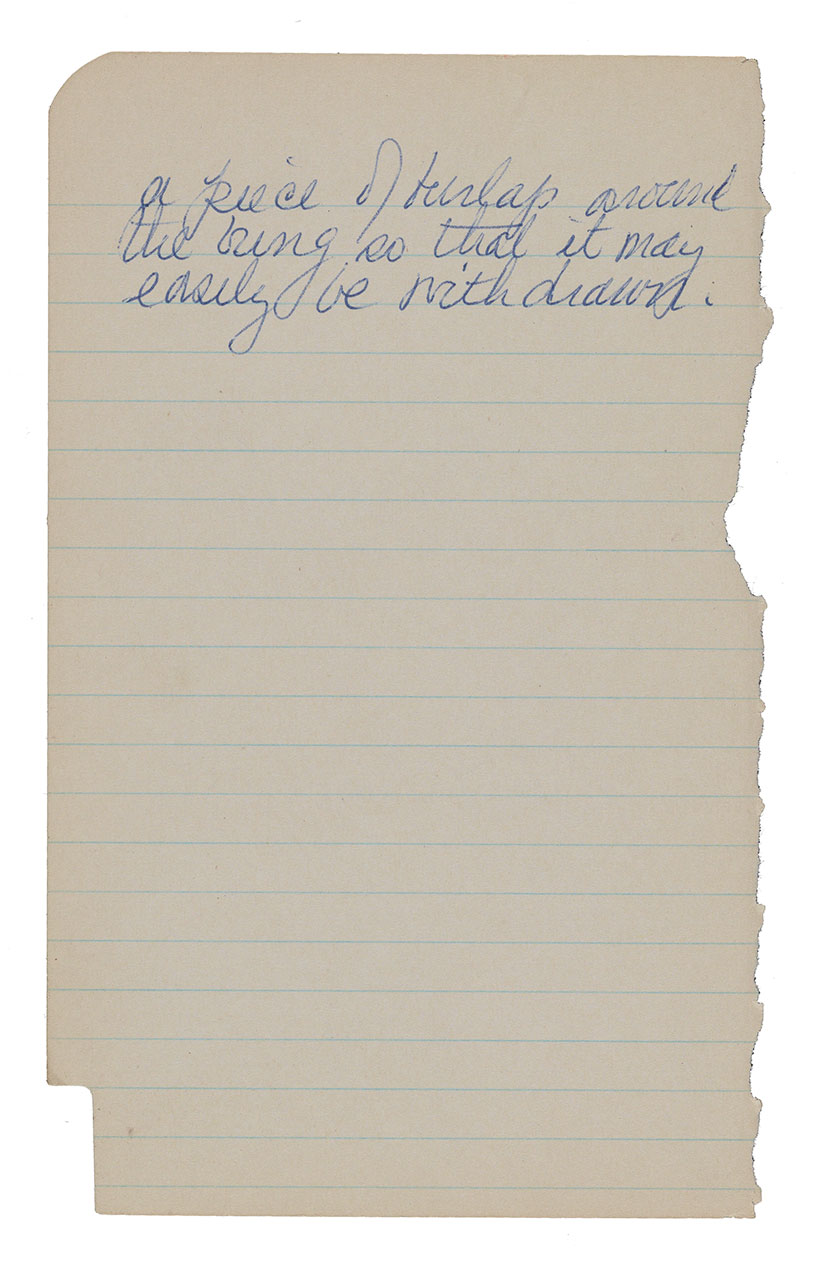 a piece of burlap around
the bung so that it may
easily be withdrawn.